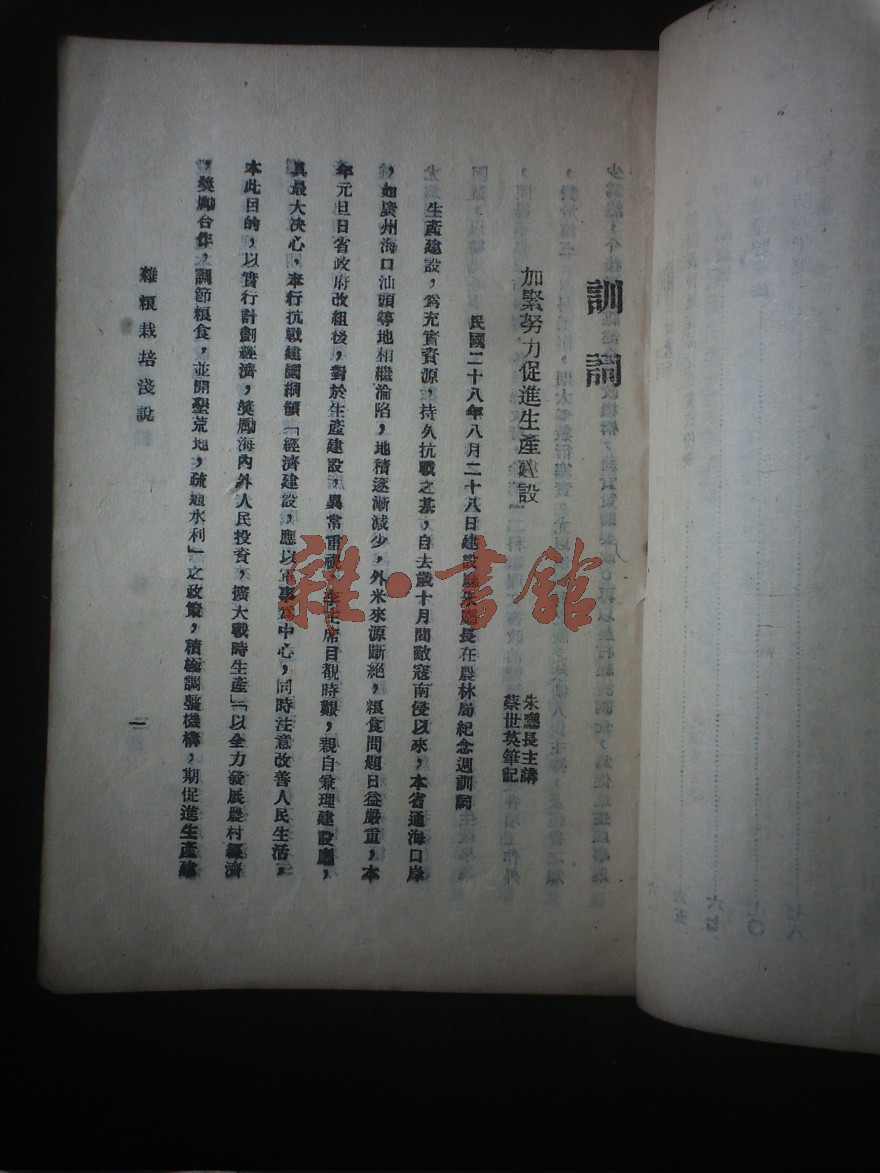 訓詞
加緊努力促進生產建設
朱廳長主講
蔡世英筆記
民國二十八年八月二十八日建設廳朱廳長在農林局紀念週訓詞
生產建設，爲充實資源，持久抗戰之基，自去歲十月間敵寇南侵以來，本省通海口岸
，如廣州海口汕頭等地相繼淪陷，地積逐漸減少，外米來源斷絕，粮食問題日益嚴重，本
年元旦日省政府改組後，對於生產建設，異常重視，李主席目覩時艱，親自兼理建設廳，
具最大決心，奉行抗戰建國綱領「經濟建設，應以軍事爲中心，同時注意改善人民生活，
本此目的，以實行計劃經濟，獎勵海內外人民投資，擴大戰時生產」「以全力發展農村經濟
，獎勵合作，調節粮食，並開墾荒地，疏通水利」之政策，積極調整機構，期促進生產建
雜粮栽培淺說
一
雜·書館